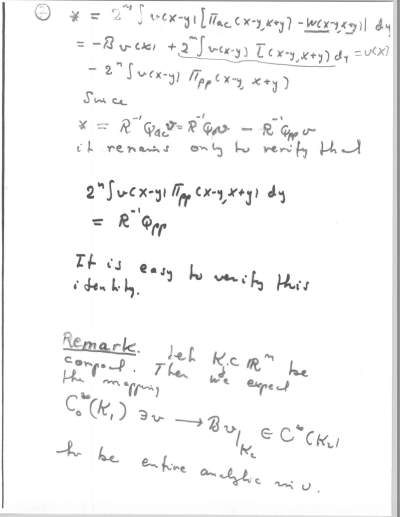 * = 2^n ∫ v(x-y) [Π_ac(x-y, x+y) - W(x-y, x+y)] dy
= -B v(x) + 2^n ∫ v(x-y) I(x-y, x+y) dy = v(x)
- 2^n ∫ v(x-y) Π_pp(x-y, x+y)
Since
* = R^{-1} Q_ac v = R^{-1} Q v - R^{-1} Q_pp v
it remains only to verify that
2^n ∫ v(x-y) Π_pp(x-y, x+y) dy
= R^{-1} Q_pp
It is easy to verify this
identity.
Remark. Let K_j ⊂ ℝ^n be
compact. Then we expect
the mapping
C_0^∞(K_1) ∋ v → B v|_{K_2} ∈ C^∞(K_2)
to be entire analytic in v.